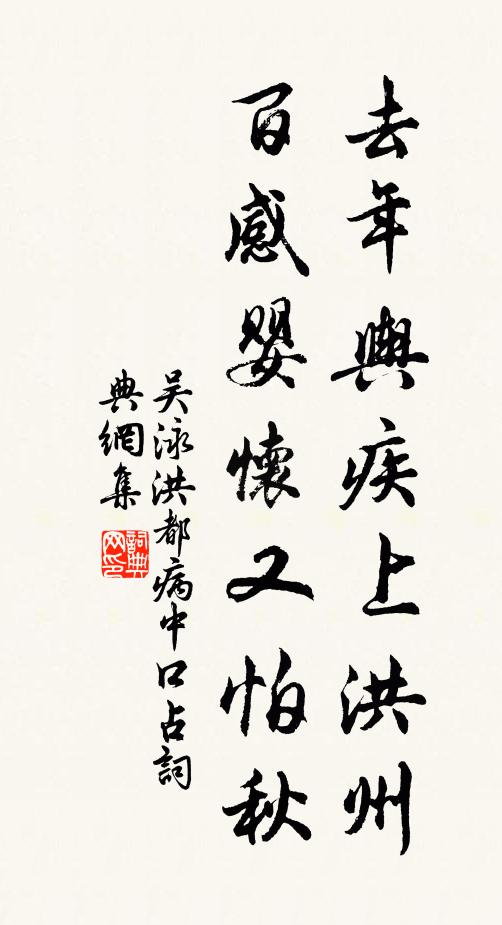 去年輿疾上洪州
百感嬰懷又怕秋
吴泳洪都病中口占詞
典網集
詞典网印